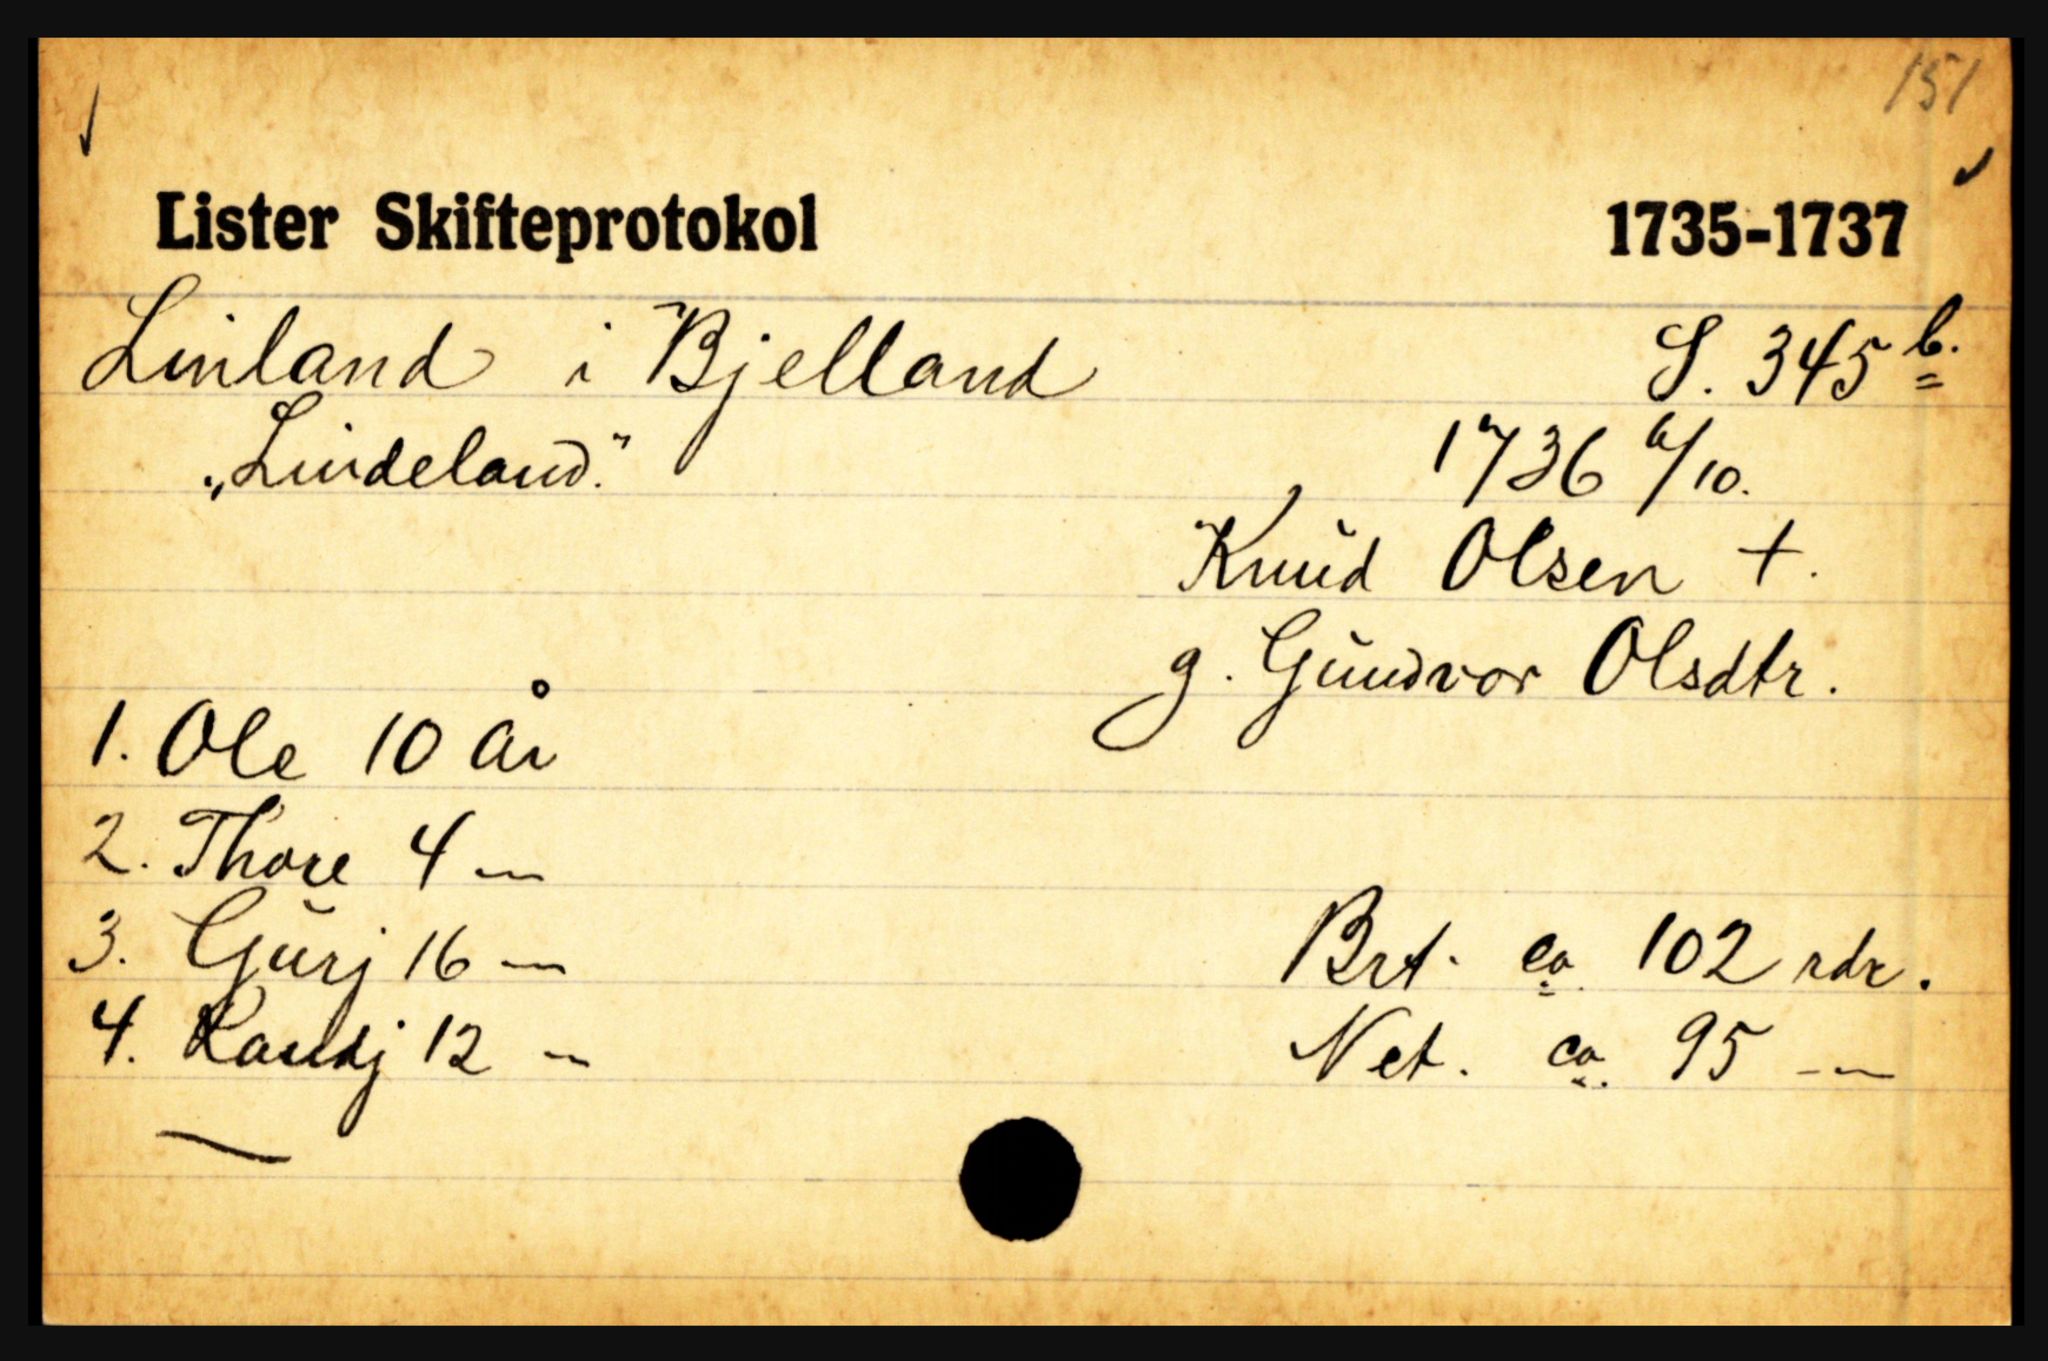 151
Lister Skifteprotokol 1735-1737
Linland i Bjelland S. 345 b.
„Lindeland." 1736 6/10.
Knud Olsen +.
g. Gundvor Olsdtr.
1. Ole 10 år
2. Thore 4 —
3. Gurj 16 — Brt. ca. 102 rdr.
4. Randj 12 — Net. ca. 95 —